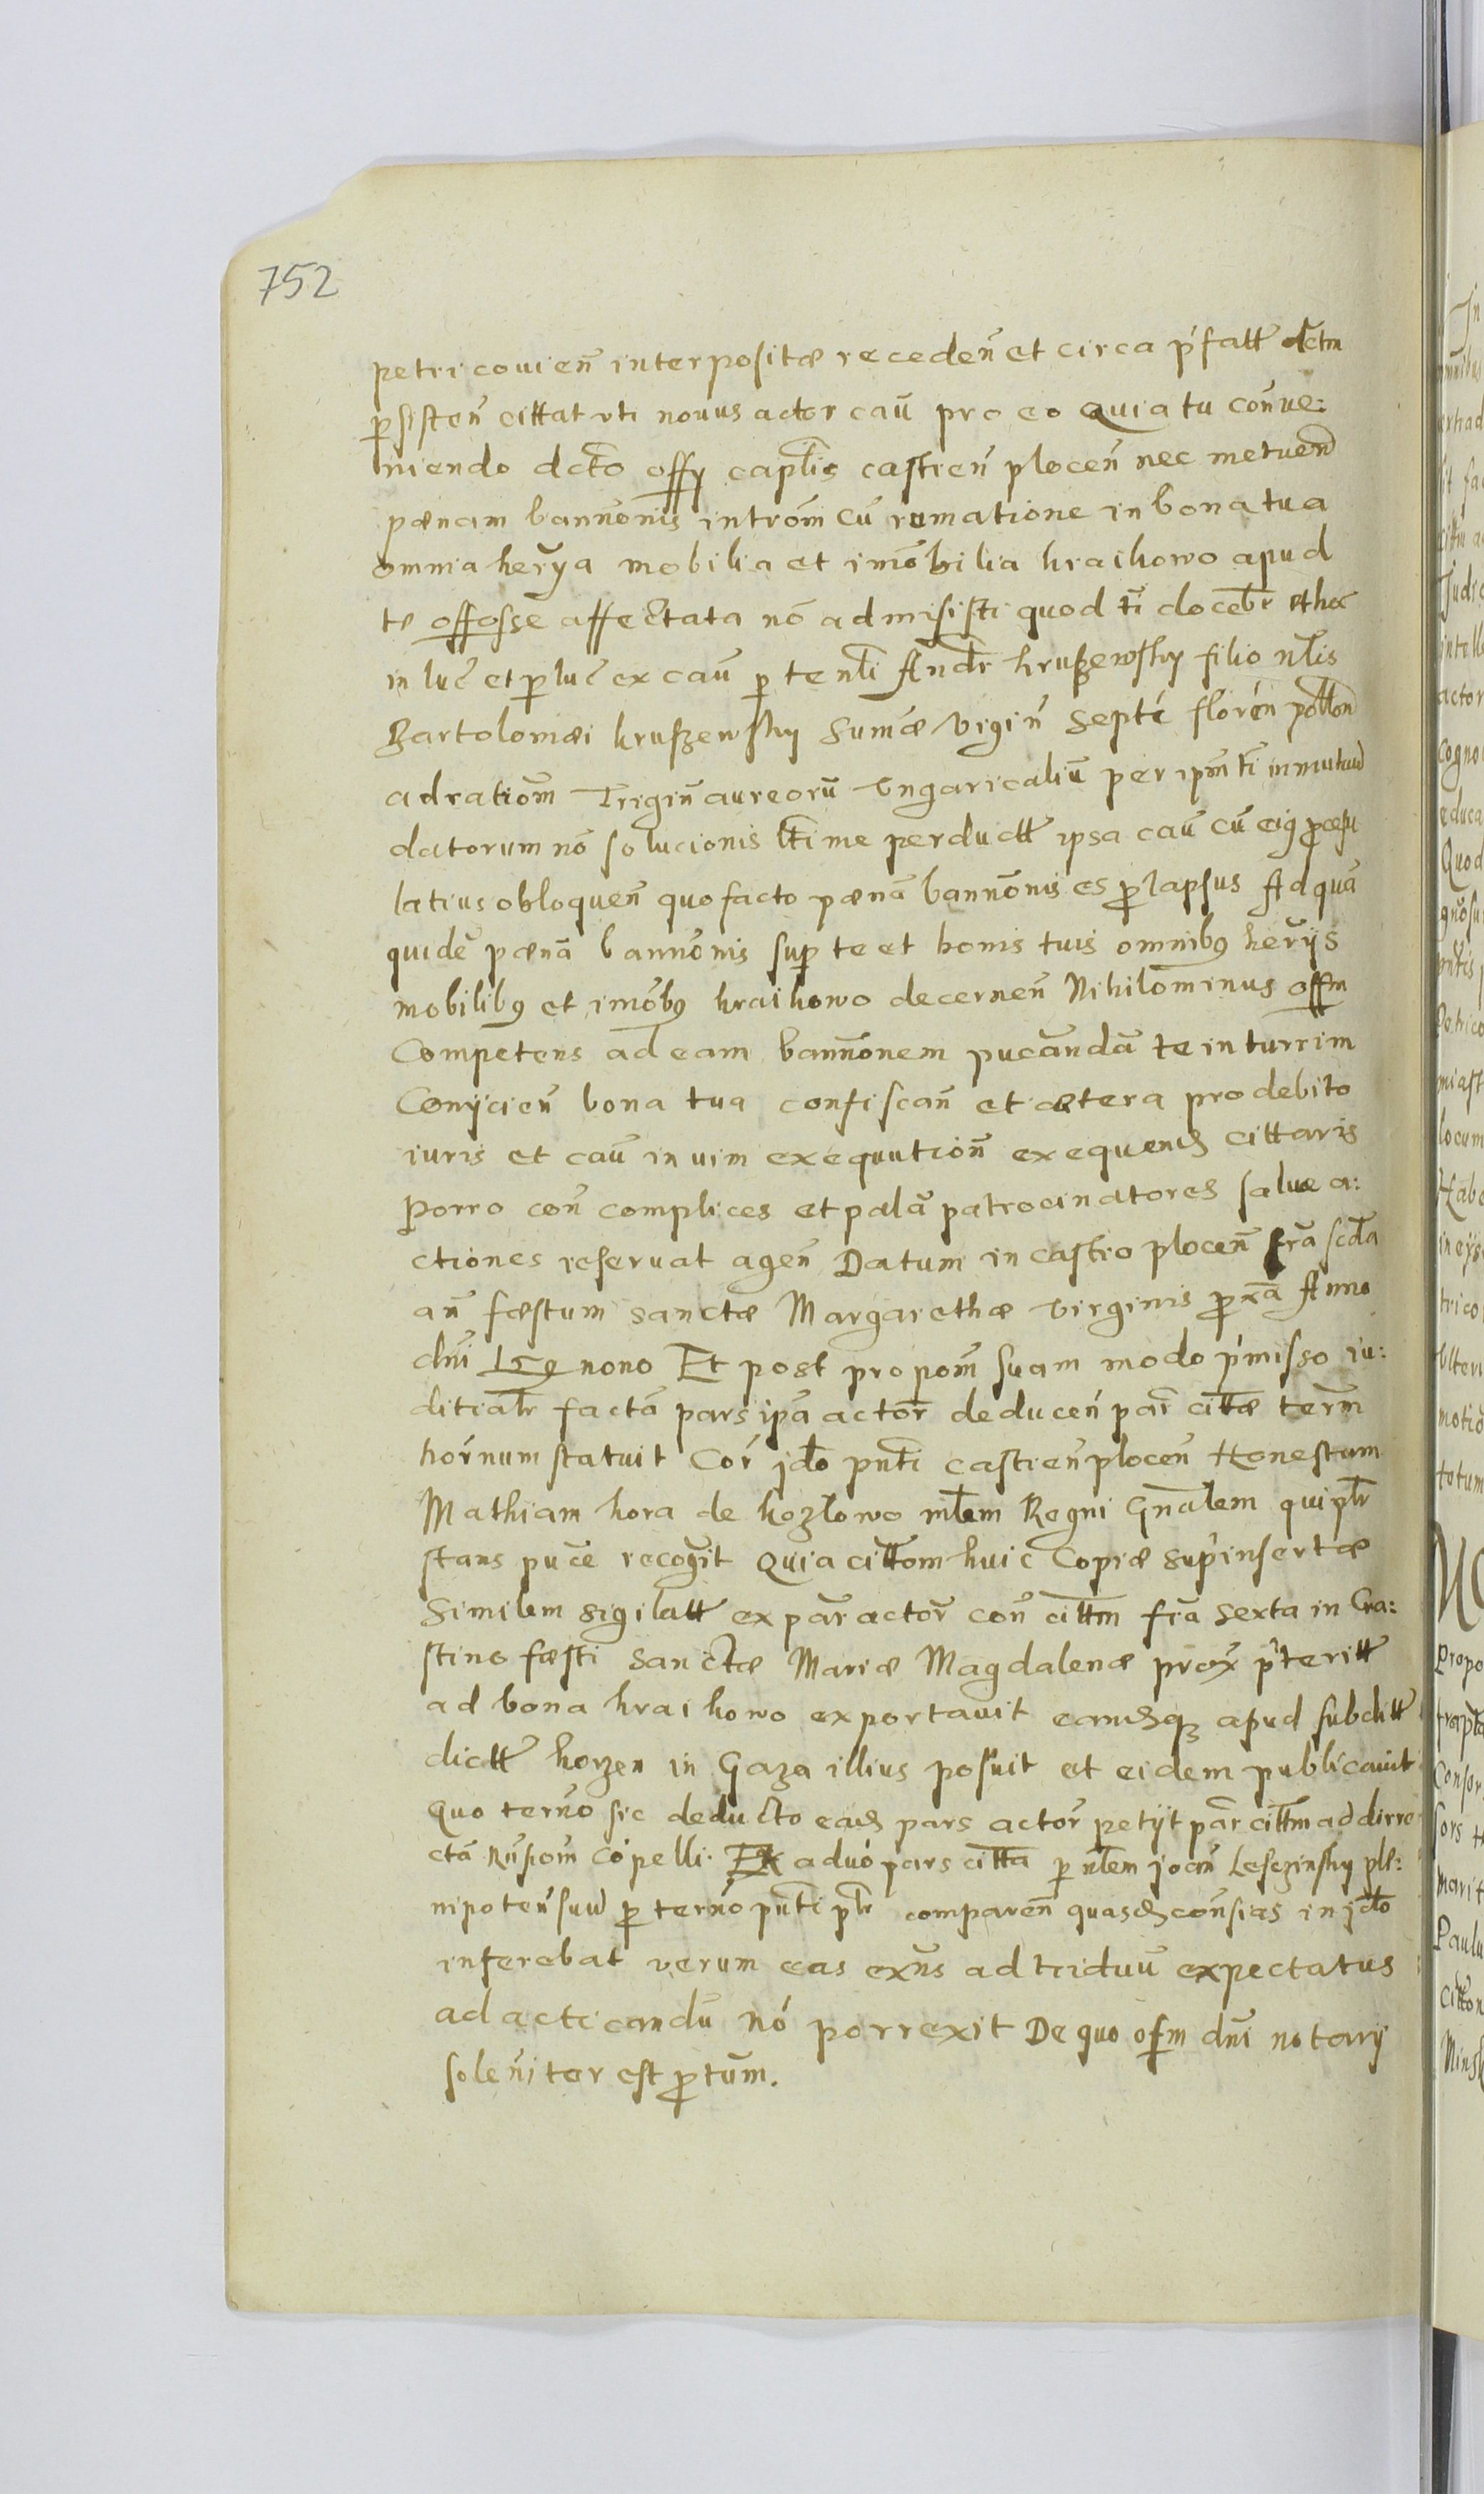 752
petricouien̄ interpositæ receden̄ et circa p̄fatt̄ dctm
p̱sisten̄ cittat vti nouus actor caū pro eo Quia tu conue:
niendo dcto offy capt̄lis castren̄ plocen̄ nec metuen̄
pænam bannonis introm̄ cū rumatione in bona tua
omnia herīja mobilia et imōbilia kraikowo apud
te offosse affectata nō admisisti quod tī doceb̄r et hoc
in luc̄ et p̱ luc̄ ex caū p̱ te nl̄i And̄r kruſzewsky filio nl̄is
Bartolomæi kruſzewsky sumæ vigin̄ septē floren̄ polon̄
ad ratiom̄ Trigin̄ aureorū vngaricaliū per ipm̄ tī in mutuū
datorum nō solucionis lt̄ime perductt̄ ipsa caū cū eiꝗ ꝓcesu
latius obloquen̄ quo facto pænā bannonis es ꝓlapsus Ad quā
quidē pænā bannonis suꝑ te et bonis tuis omnibꝗ herijs
mobilibꝗ et imōbꝗ kraikowo decernen̄ Nihilominus offm
Competens ad eam bannonem pucandā te in turrim
Conijcien̄ bona tua confiscan̄ et cætera pro debito
iuris et caū in uim exequution̄ exequend̄ cittaris
Porro con̄ complices et palā patrocinatores saluæ a:
ctiones reseruat agen̄ Datum in castro plocen̄ fr̄a scd̄a
an̄ fæstum sanctæ Margarethæ virginis ꝓxā Anno
dn̄i nono Et post propom̄ suam modo p̄misso iu:
ditialr̄ factā pars ipā actor̄ deducen̄ par̄ citt̄æ term̄
hor̄num statuit Cor̄ jd̄o pn̄ti castren̄ plocen̄ Honestum
Mathiam hora de kozlowo ml̄em Regni Gn̄alem qui pl̄r
stans puc̄e recoḡit Quia citt̄om huic Copiæ sup̄insertæ
Similem sigilatt̄ ex par̄ actor̄ con̄ citt̄m fr̄a sexta in Cra:
stino fæsti sanctæ Mariæ Magdalenæ prox̄ p̄teritt̄
ad bona kraikowo exportauit eandꝗ apud subditt̄
dictt̄ korzen in Gaza illius posuit et eidem publicauit
Quo termo sic deducto ead̄ pars actor̄ petijt par̄ citt̄m ad dirre
ctā Rn̄siom̄ cōpelli. aduō pars citt̄a p̱ nl̄em joan̄ Lesczinsky ple:
nipoten̄ suū p̱ termo pn̄ti pl̄r comparen̄ quasd̄ con̄sias in jd̄o
inferebat verum eas exn̄s ad triduū expectatus
ad acticandū nō porrexit De quo ofm̄ dn̄i notarij
solen̄iter est ꝓtum̄.